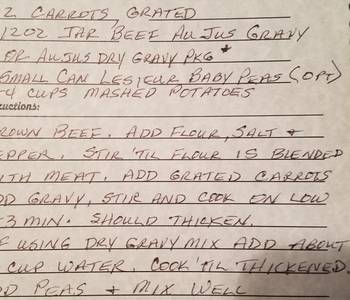 2 CARROTS, GRATED
12OZ JAR BEEF AU JUS GRAVY
OR AU JUS DRY GRAVY PKG*
SMALL CAN LESIEUR BABY PEAS (OPT)
-4 CUPS MASHED POTATOES
uctions:
ROWN BEEF. ADD FLOUR, SALT +
EPPER. STIR 'TIL FLOUR IS BLENDED
ITH MEAT. ADD GRATED CARROTS
DD GRAVY, STIR AND COOK ON LOW
-3 MIN. SHOULD THICKEN.
F USING DRY GRAVY MIX ADD ABOUT
CUP WATER. COOK 'TIL THICKENED.
DD PEAS + MIX WELL